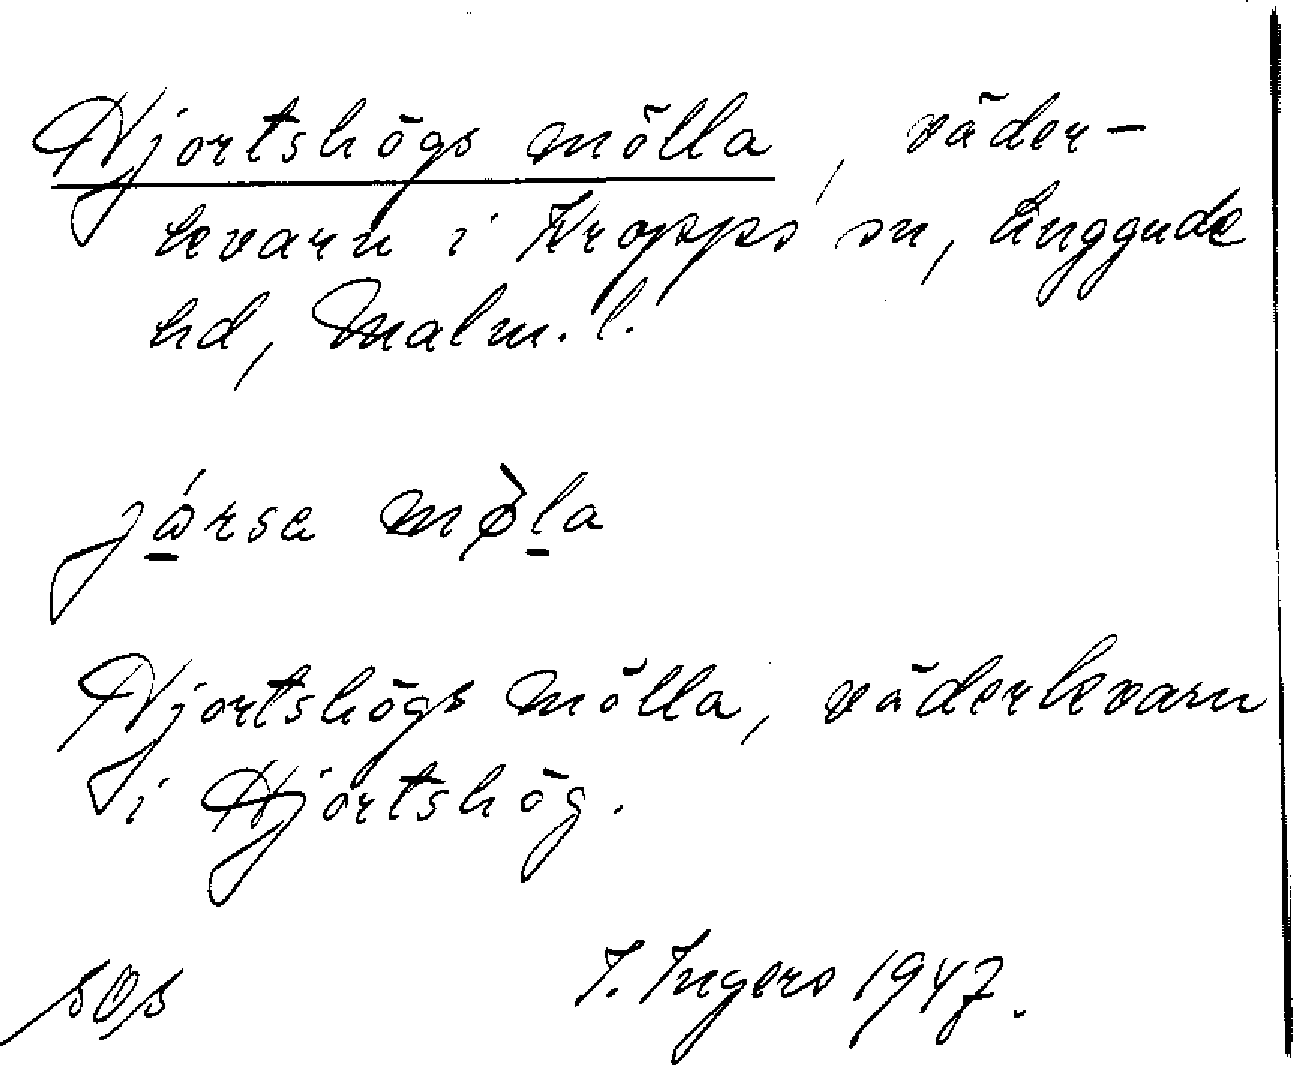 Hjortshögs mölla, väder-
kvarn i Kropps sn, Luggude
hd, Malm. l.
jǻrsa mø̀la
Hjortshögs mölla, väderkvarn
i Hjortshög.
I. Ingers 1947.